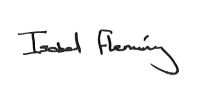 Isabel Fleming